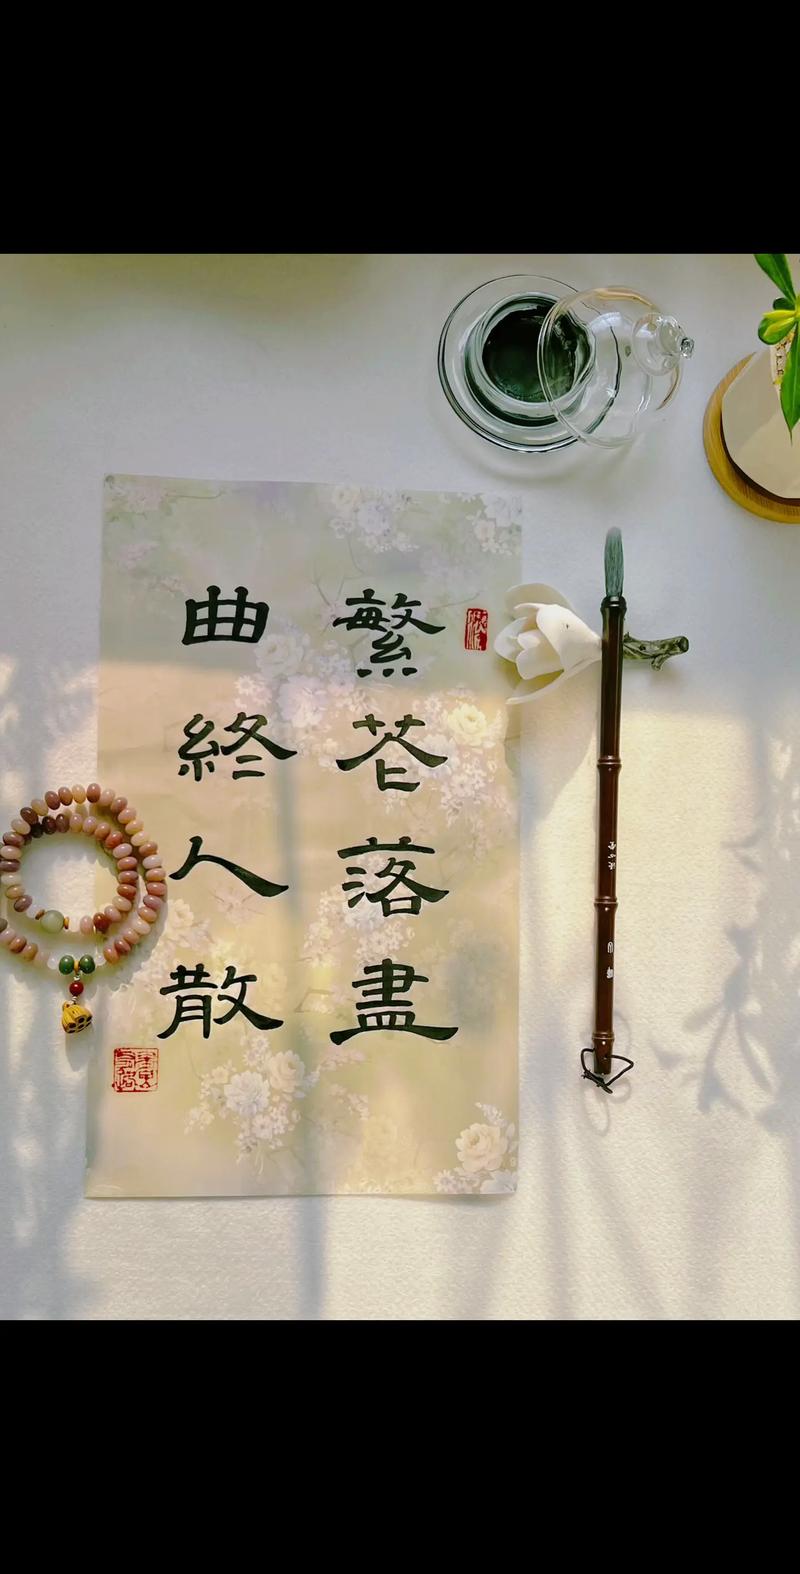 繁花落盡
曲終人散